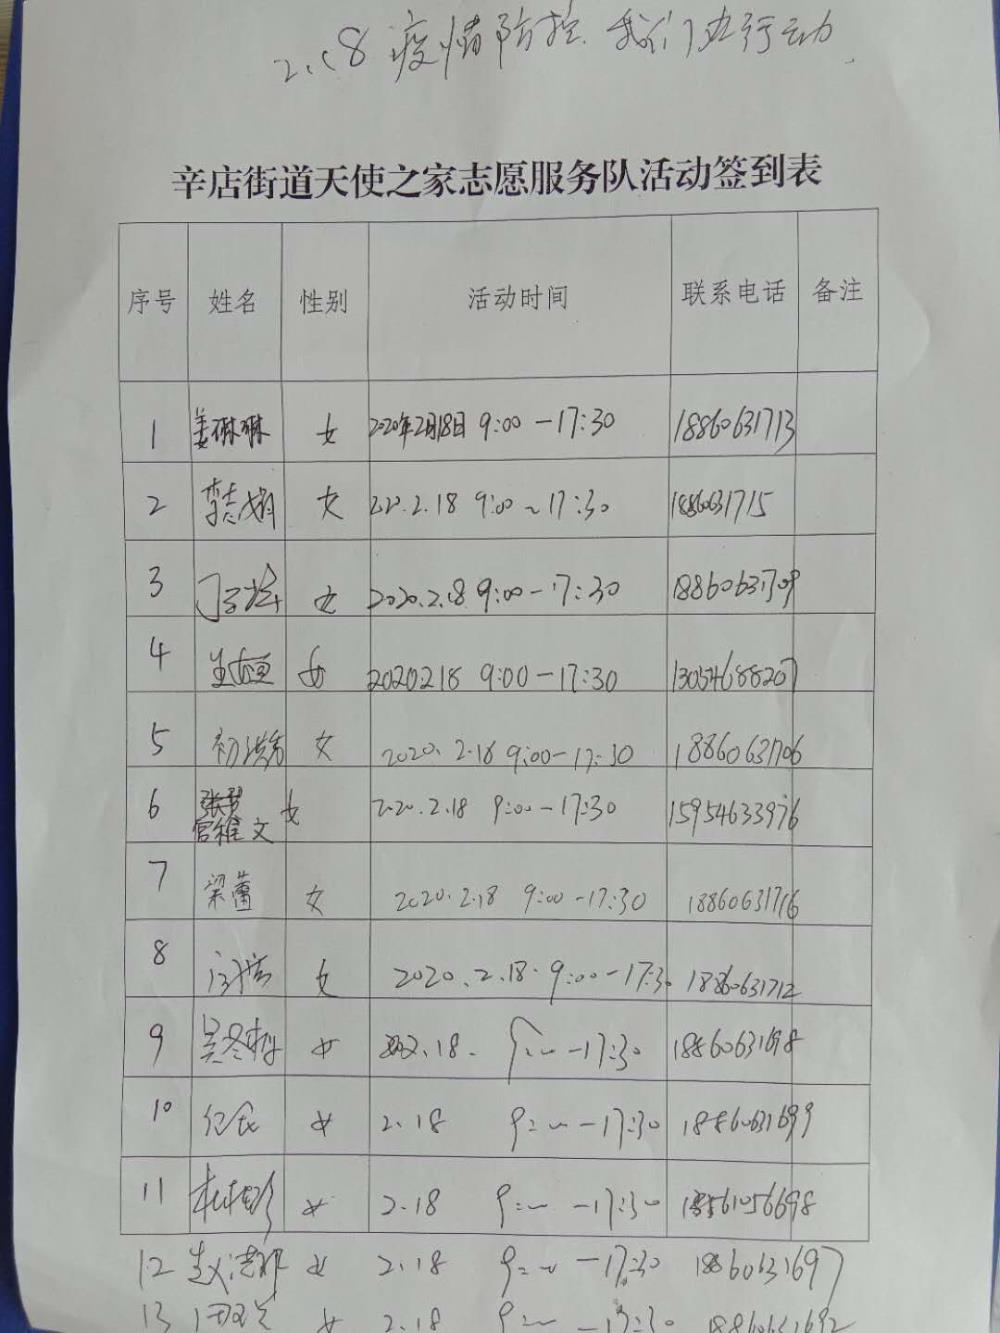 2.18 疫情防控 我们在行动
辛店街道天使之家志愿服务队活动签到表
序号 姓名 性别 活动时间 联系电话 备注
1 姜琳琳 女 2020年2月18日 9:00-17:30 18860631713
2 李志娟 女 2020.2.18 9:00~17:30 1886031715
3 女 2020.2.18 9:00-17:30 18860631709
4 女 2020218 9:00-17:30 13054688207
5 初 女 2020.2.18 9:00-17:30 18860631706
6 官雅文 女 2020.2.18 9:00-17:30 15954633976
7 梁蕾 女 2020.2.18 9:00-17:30 18860631716
8 女 2020.2.18. 9:00-17:30 18860631712
9 吴冬梅 女 2.18. 9:00-17:30 18860631698
10 女 2.18 9:00-17:30 18860631699
11 女 2.18 9:00-17:30 18561056698
12 赵 女 2.18 9:00-17:30 18860631697
13 女 2.18 9:00-17:30 18860631692